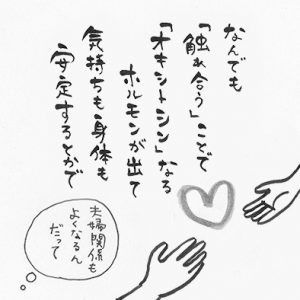 なんでも
「触れ合う」ことで
「オキシトシン」なる
ホルモンが出て
気持ちも身体も
安定するとかで
夫婦関係も
よくなるん
だって